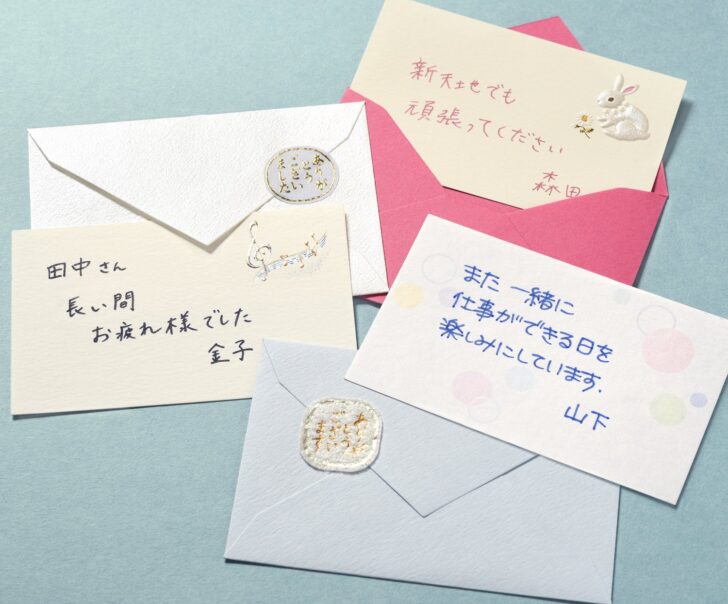 新天地でも
頑張ってください
森田
ありが
とう
ござい
ました
田中さん
長い間
お疲れ様でした
金子
また一緒に
仕事ができる日を
楽しみにしています.
山下